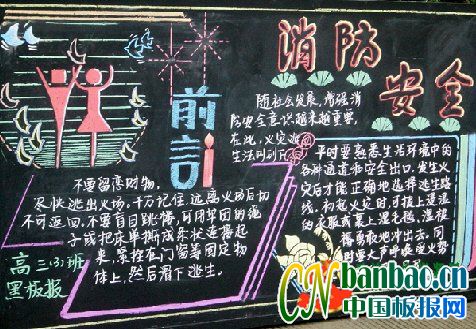 消防
安全
前言
随社会发展，增强消
防安全意识越来越重要。
在此，火灾
生活
不要留恋财物。
尽快逃出火场，千万记住，逃离火场后切
不可返回。不要盲目跳楼，可用牢固的绳
子或把床单撕成条状连接起
来，紧拴在门窗等固定物
体上，然后滑下逃生。
平时要熟悉生活环境中的
各种通道和安全出口，发生火
灾后才能正确地选择逃生路
线。初起火灾时，可披上浸湿
的衣服或裹上湿毛毯、湿棉
褥勇敢地冲出去。同
时要大声呼
高三(3)班
黑板报
CNbanbao.cn
中国板报网